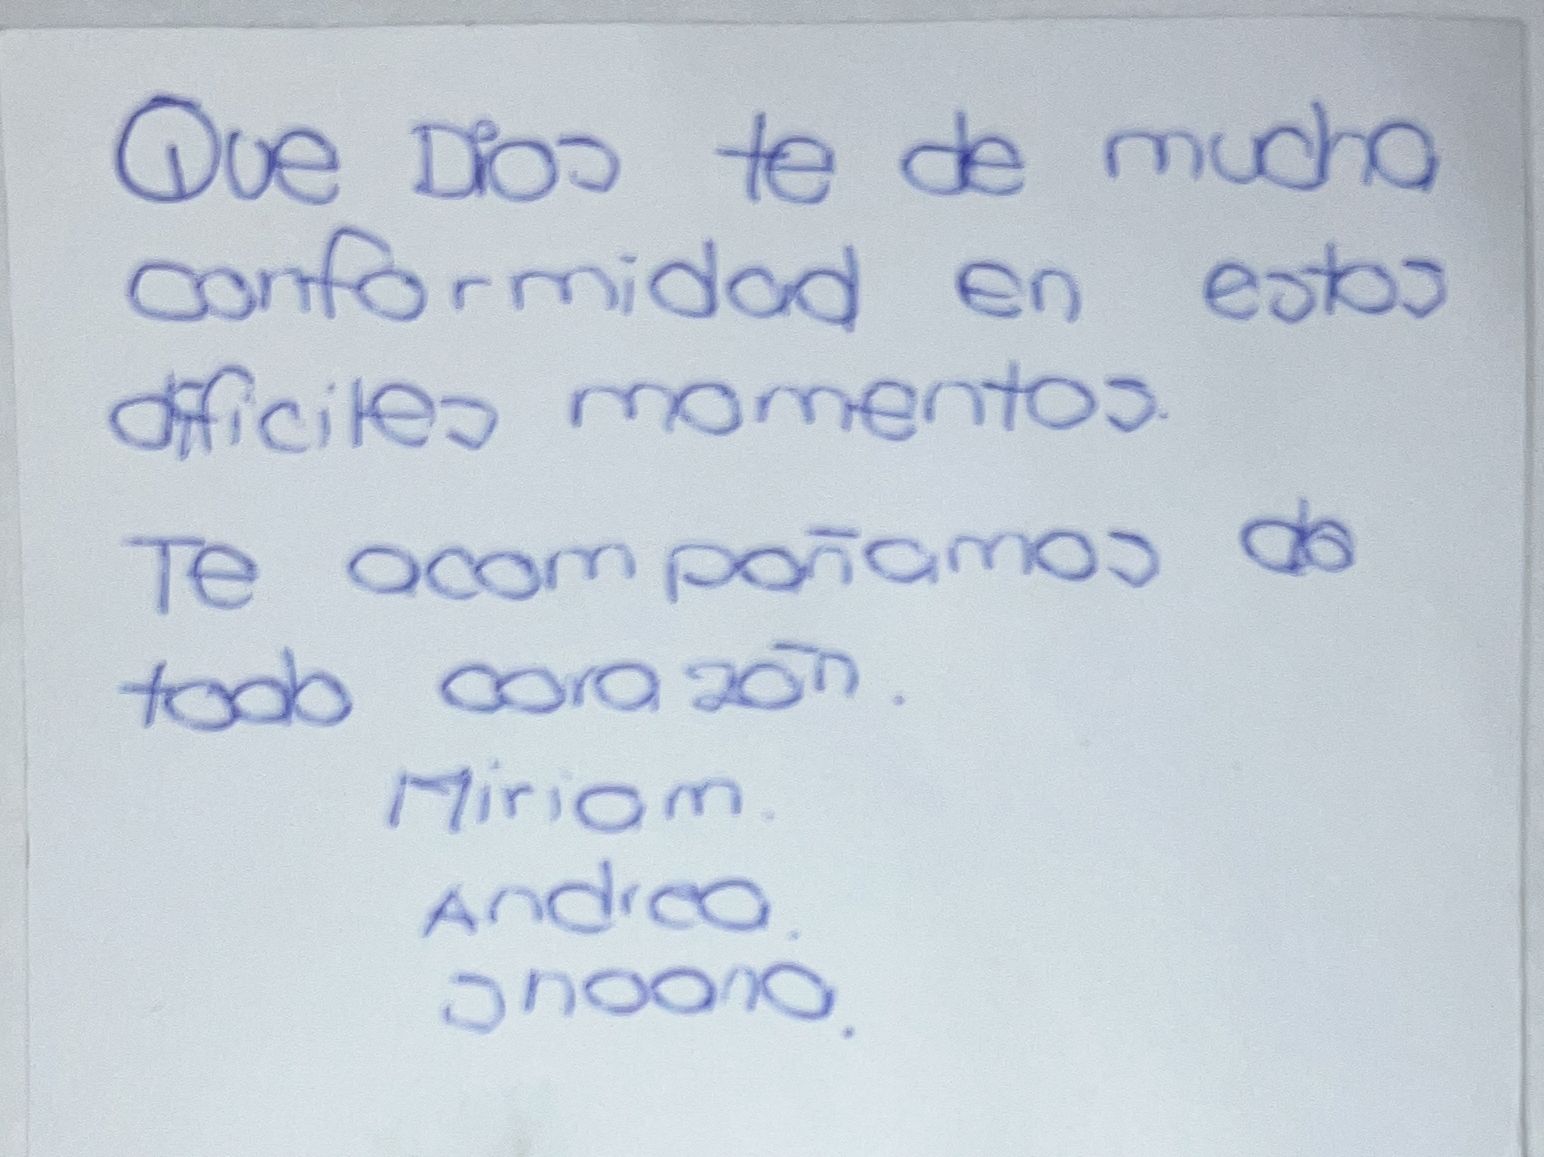 Que Dios te de mucha
conformidad en estos
dificiles momentos.
Te acompañamos de
todo corazón.
Miriam.
Andrea.